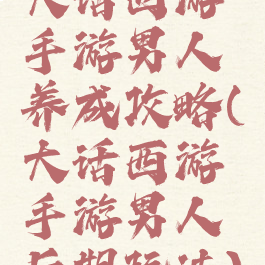 大话西游
手游男人
养成攻略(
大话西游
手游男人